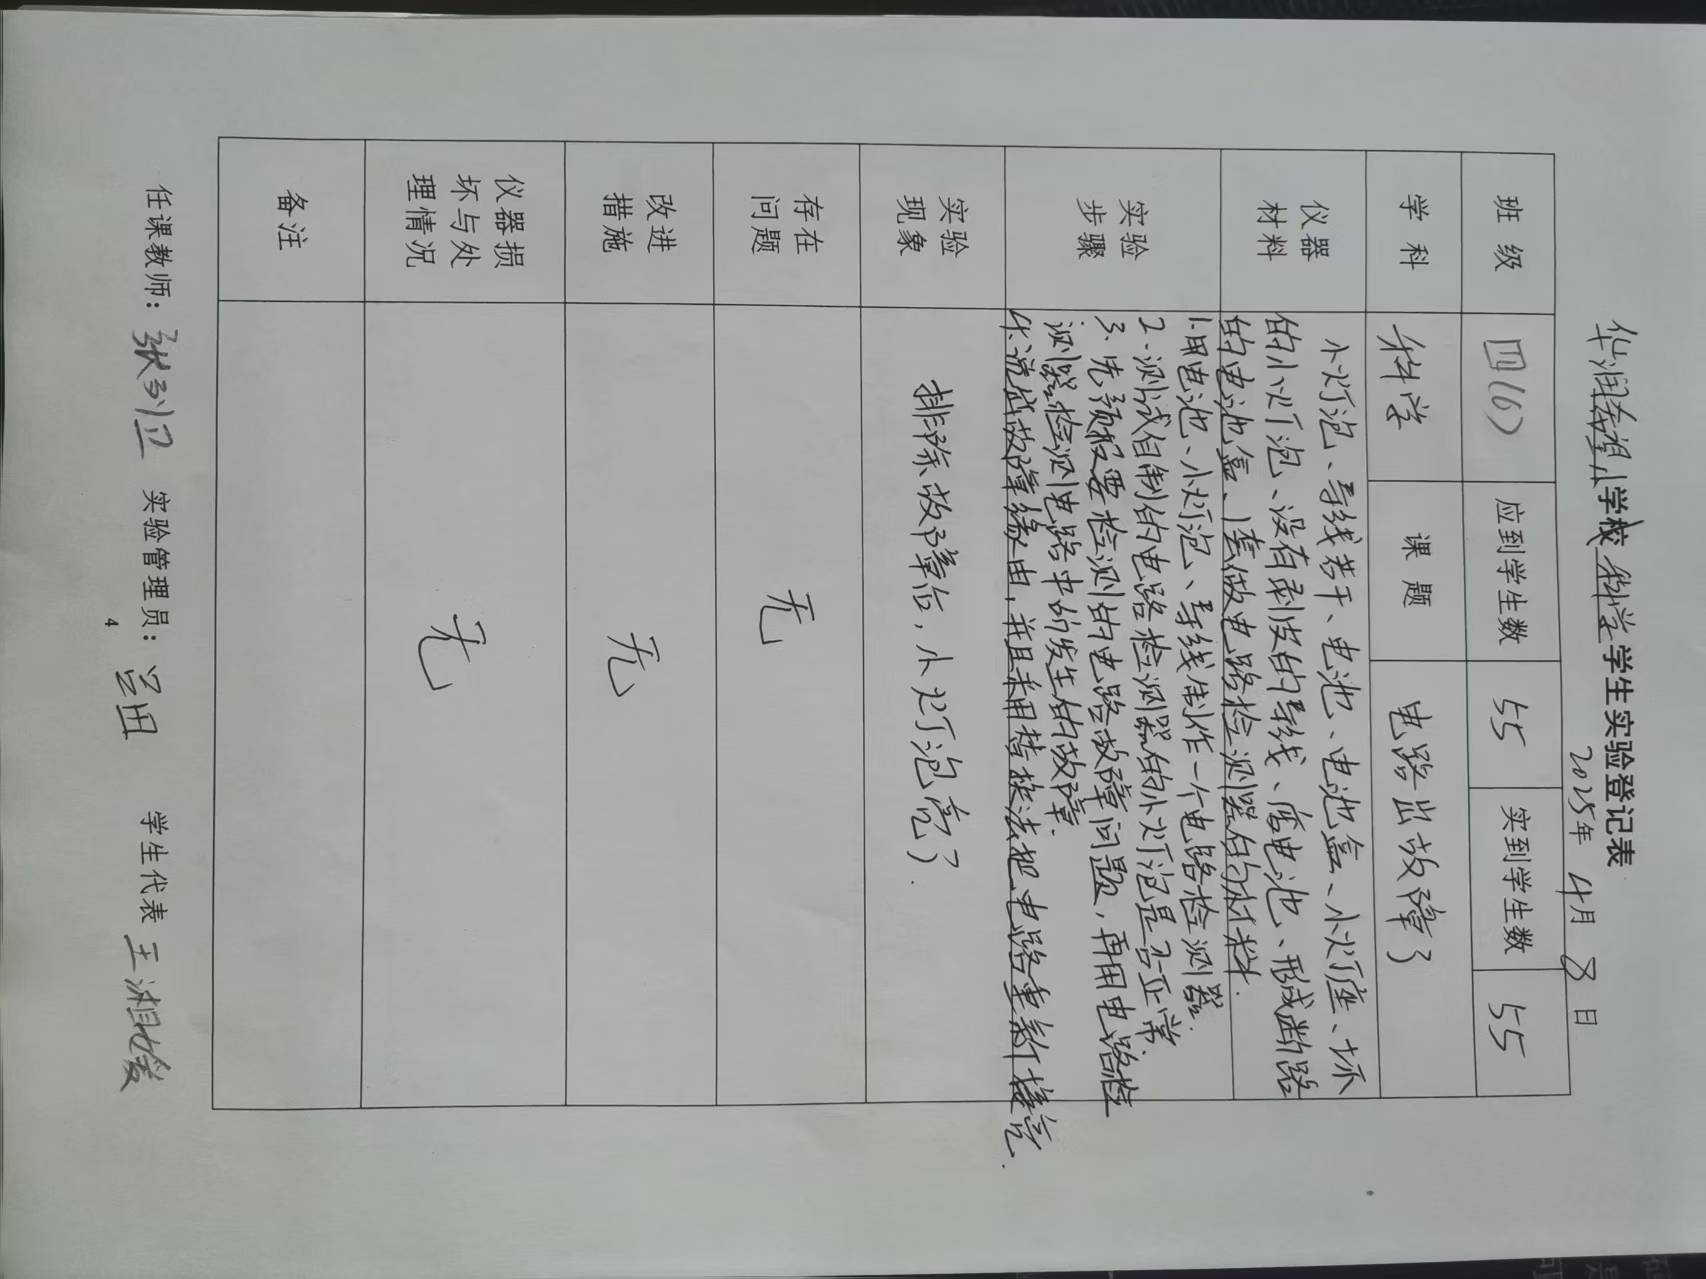 华润希望小学校科学学生实验登记表
2025年4月8日
班级 四(6) 应到学生数 55 实到学生数 55
学科 科学 课题 电路出故障了
仪器材料
小灯泡、导线若干、电池、电池盒、小灯座、坏
的小灯泡、没有剥皮的导线、废电池、形成断路
的电池盒、1套做电路检测器的材料.
实验步骤
1.用电池、小灯泡、导线制作一个电路检测器.
2.测试自制的电路检测器的小灯泡是否正常.
3.先预假要检测的电路故障问题,再用电路检
测器检测电路中的发生的故障.
4.说做故障缘由,并且采用替换法把电路重新接亮.
实验现象 排除故障后,小灯泡亮了.
存在问题 无
改进措施 无
仪器损坏与处理情况 无
备注
任课教师: 实验管理员: 学生代表 王湘媛
4